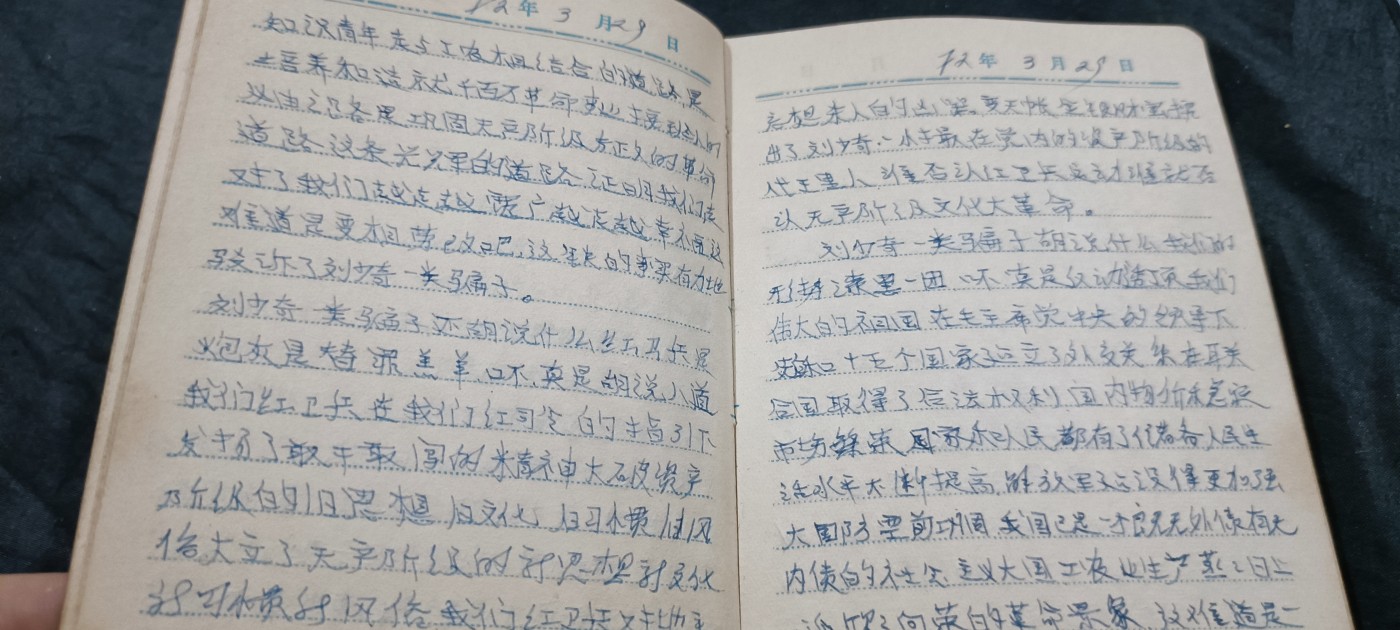 72年 3 月29 日
知识青年走与工农相结合的道路是
培养和造就千百万革命事业接班人的
道路是巩固无产阶级专正的革命
道路这条光光辉的道路证明我们走
对了我们越走越宽广越走越幸福这
难道是变相劳改吗巴这里的事实有力地
驳斥了刘少奇一类骗子。
刘少奇一类骗子还胡说什么红卫兵是
炮灰是替罪羔羊呸真是胡说八道
我们红卫兵在我们红司令的指引下
发扬了敢干敢闯的精神大破资产
阶级的旧思想旧文化旧习惯旧风
俗大立了无产阶级的新思想新文化
新习惯新风俗我们红卫兵
72年 3 月29日
出了刘少奇一小撮在党内的资产阶级的
代王里人谁否认红卫兵就否
认无产阶级文化大革命。
刘少奇一类骗子胡说什么我们的
漆黑一团呸真是反动透顶我们
伟大的祖国在毛主席党中央的领导下
十五个国家建立了外交关系在联
合国取得了合法权利国内物价稳
市场繁荣国家和人民都有了储蓄人民生
活水平大大提高解放军建设得更加强
大国防空前巩固我国已是一个既无外债有无
内债的社会主义大国工农业生产蒸蒸日上
向荣的革命景象这难道是一